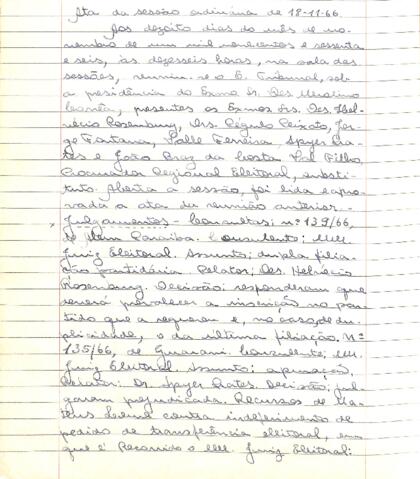 Ata da sessão ordinária de 18-11-66.
Aos dezoito dias do mês de no-
vembro de um mil novecentos e sessenta
e seis, às dezesseis horas, na sala das
sessões, reuniu-se o E. Tribunal, sob
a presidência do Exmo Sr. Des. Merolino
Corrêa, presentes os Exmos Srs. Des. Hel-
vécio Rosenburg, Drs. Régulo Peixoto, Jor-
ge Fontana, Valle Ferreira, Spyer Pra-
tes e João Braz da Costa Val Filho,
Procurador Regional Eleitoral, substi-
tuto. Aberta a sessão, foi lida e apro-
vada a ata da reunião anterior.
Julgamentos - Consultas: nº 139/66,
de Caraíba. Consulente: MM.
Juiz Eleitoral. Assunto: dupla filia-
ção partidária. Relator: Des. Helvécio
Rosenburg. Decisão: responderam que
deverá prevalecer a inscrição no par-
tido que a requereu e, no caso, de du-
plicidade, o da última filiação. Nº
135/66, de Guarani. Consulente: MM.
Juiz Eleitoral. Assunto: apuração.
Relator: Dr. Spyer Prates. Decisão: jul-
garam prejudicada. Recursos: de Ma-
teus Leme contra indeferimento de
pedido de transferência eleitoral, em
que é Recorrido o MM. Juiz Eleitoral: